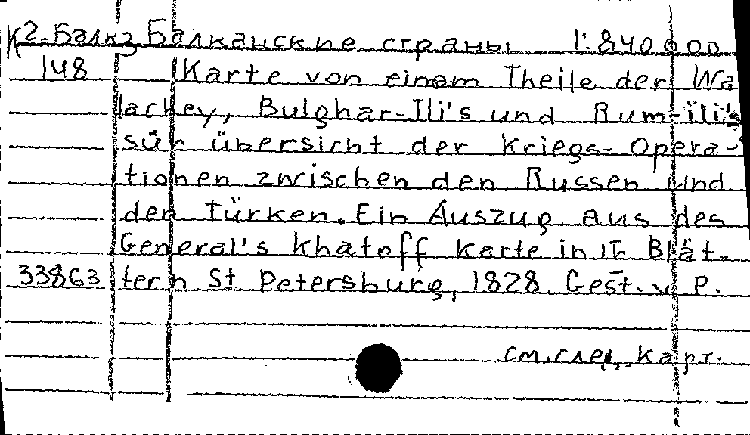 К2-Балк3 Балканские страны 1:840000
148 Karte von einem Theile der Wa
lachey, Bulghar-Ili's und Rum-ili's
sür übersicht der Kriegs-Opera-
tionen zwischen den Russen und
der Türken. Ein Auszug aus des
General's Khatoff Karte in Blät-
33863 tern St Petersburg, 1828. Gest. v. P.
см. след. карт.